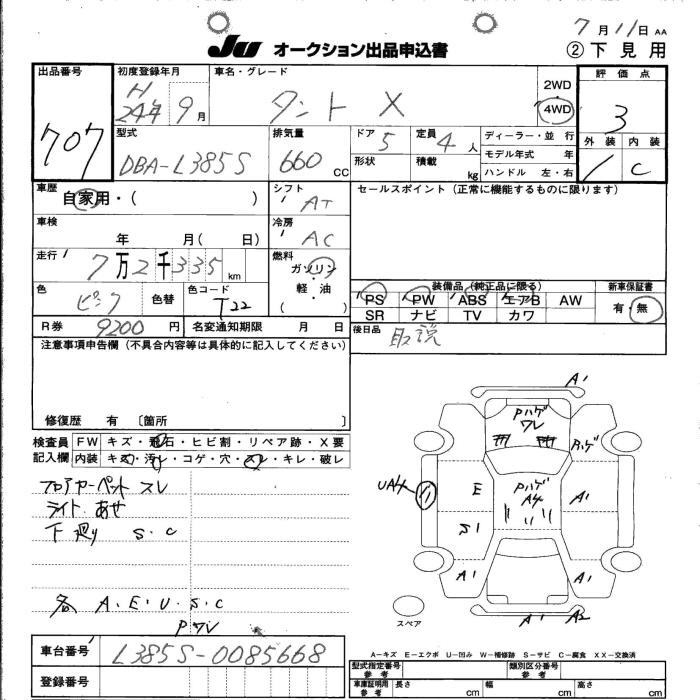 7月11日 AA
JU オークション出品申込書
② 下見用
出品番号 707
初度登録年月 H24年 9月
車名・グレード タント X
2WD
4WD
評価点 3
外装 1 内装 C
型式 DBA-L385S
排気量 660 CC
ドア 5
形状
定員 4人
積載 kg
ディーラー・並 行
モデル年式 年
ハンドル 左・右
車歴 自家用・( )
シフト AT
セールスポイント (正常に機能するものに限ります)
車検 年 月( 日)
冷房 AC
走行 7万2千335km
燃料 ガソリン
軽・油
( )
色 ピンク 色替
色コード T22
装備品(純正品に限る)
PS PW ABS エアB AW
SR ナビ TV カワ
新車保証書
有・無
R券 9200円
名変通知期限 月 日
後日品 取説
注意事項申告欄 (不具合内容等は具体的に記入してください)
修復歴 有 〔箇所 〕
検査員記入欄
FW キズ・飛石・ヒビ割・リペア跡・X要
内装 キズ・汚レ・コゲ・穴・スレ・キレ・破レ
フロアカーペット スレ
ライト あせ
下廻り S・C
各 A・E・U・S・C
Pワレ
A1
Pハゲ
ワレ
Pハゲ
UA4
E
Pハゲ
A4
A1
S1
A1
A1
A1 A2
スペア
A−キズ E−エクボ U−凹み W−補修跡 S−サビ C−腐食 XX−交換済
車台番号 L385S-0085668
登録番号
型式指定番号 参考
類別区分番号 参考
車庫証明用 参考
長さ cm
幅 cm
高さ cm